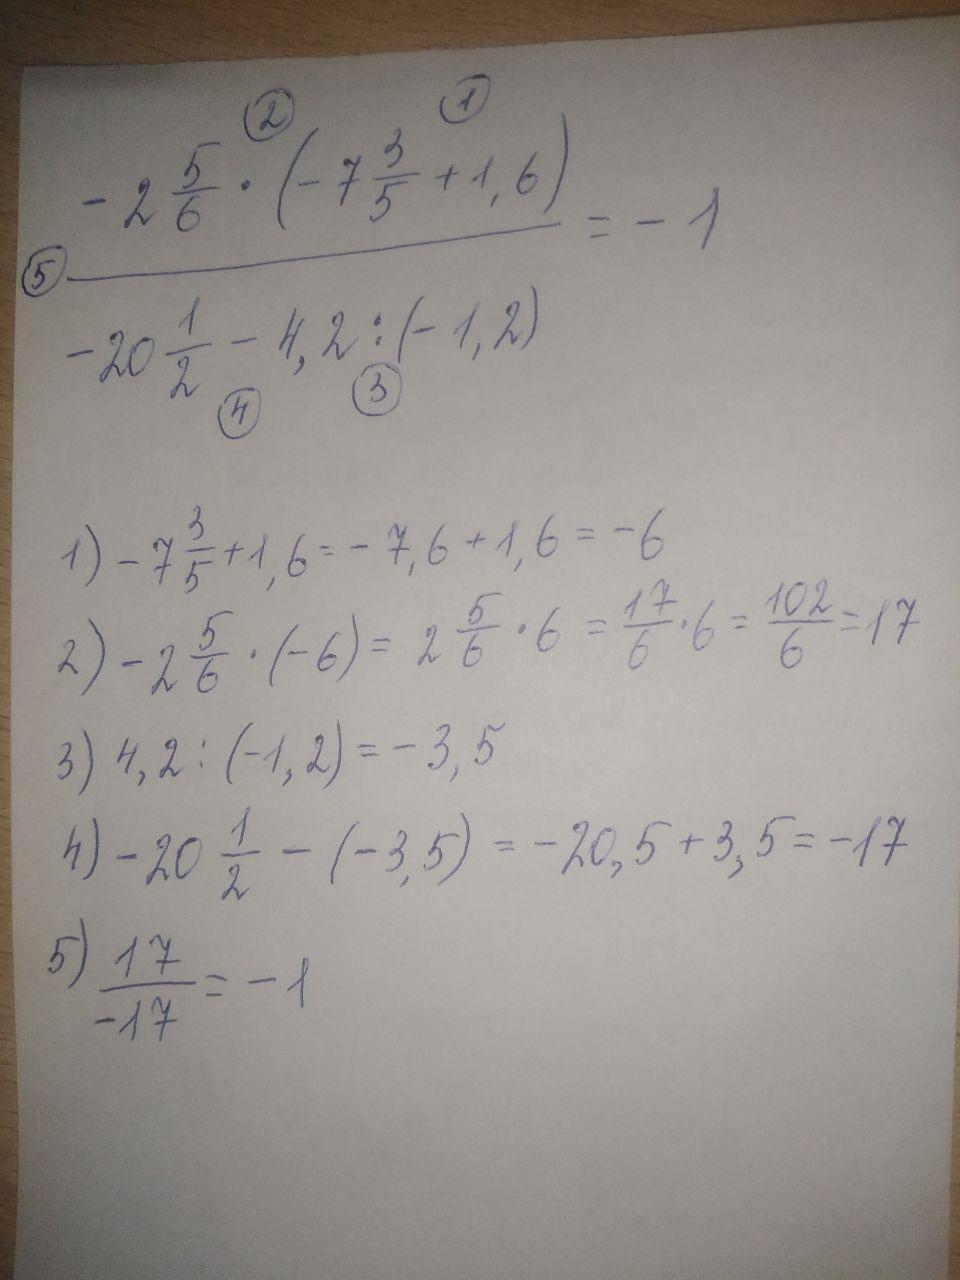 ② ①
-2 5/6 · (-7 3/5 + 1,6)
⑤ ――― = -1
-20 1/2 - 4,2 : (-1,2)
④ ③
1) -7 3/5 + 1,6 = -7,6 + 1,6 = -6
2) -2 5/6 · (-6) = 2 5/6 · 6 = 17/6 · 6 = 102/6 = 17
3) 4,2 : (-1,2) = -3,5
4) -20 1/2 - (-3,5) = -20,5 + 3,5 = -17
5) 17/-17 = -1